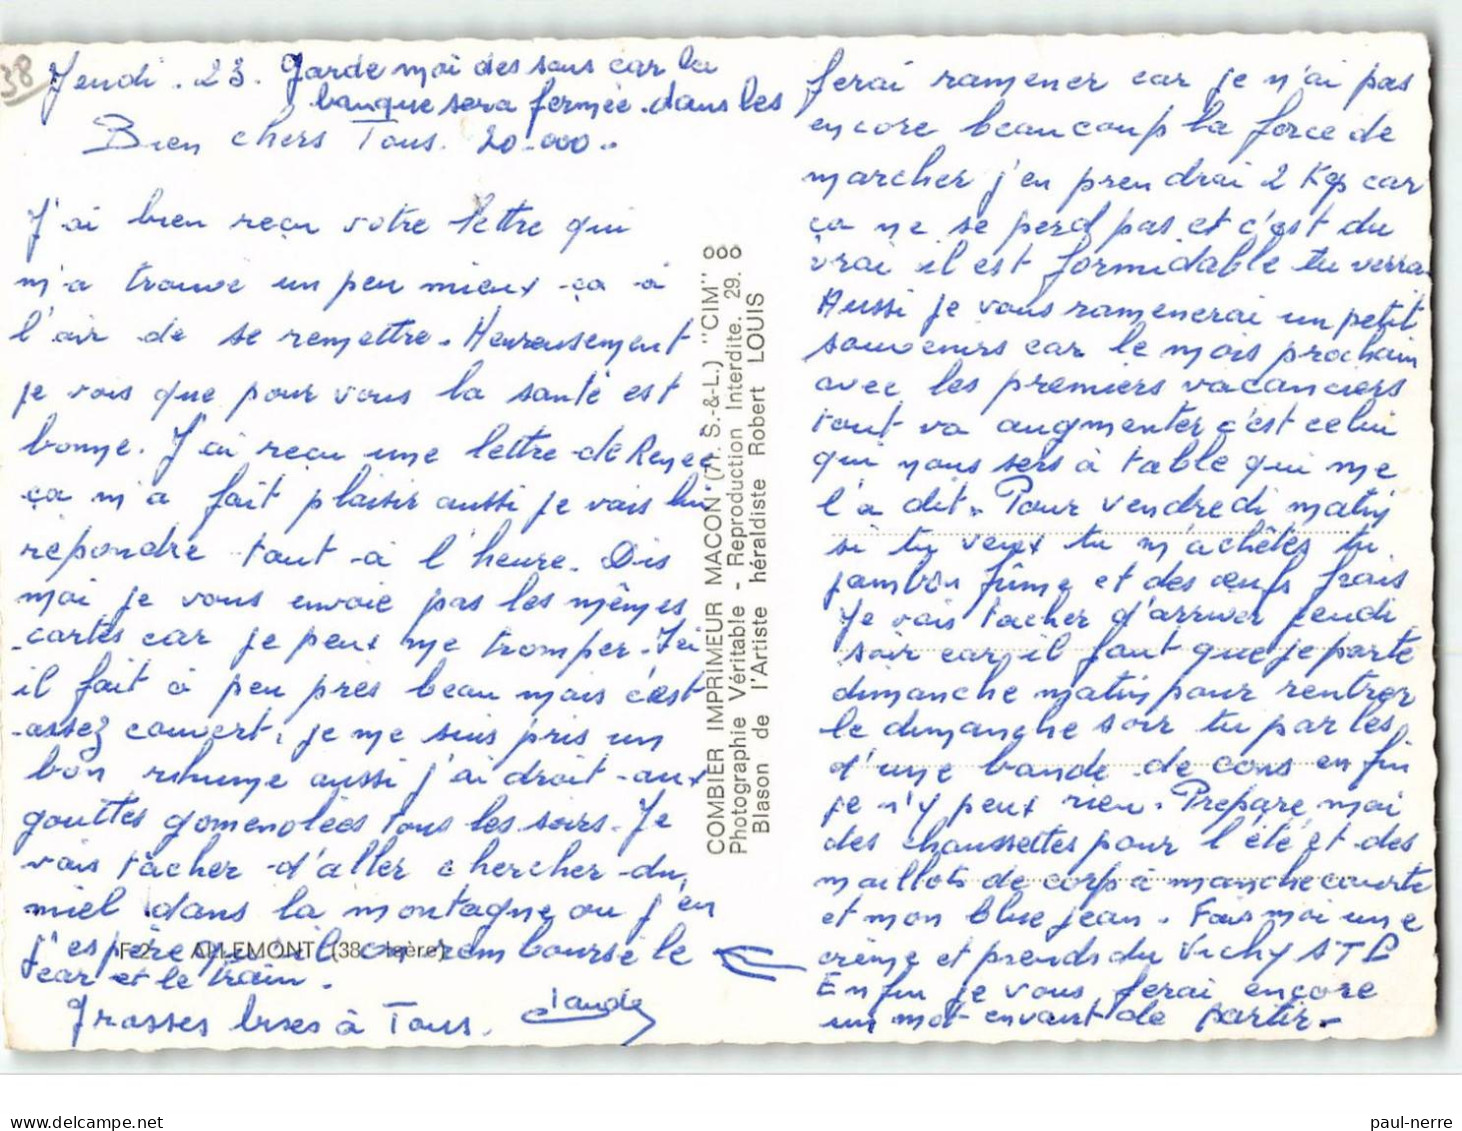 38
Jeudi. 23. Garde moi des sous car la
banque sera fermée. dans les
Bien chers Tous. 20.000..
J'ai bien reçu votre lettre qui
m'a trouvé un peu mieux ça à
l'air de se remettre. Heureusement
je vois que pour vous la santé est
bonne. J'ai reçu une lettre de Renée
ça m'a fait plaisir aussi je vais lui
répondre tout à l'heure. Dis
moi je vous envoie pas les mêmes
cartes car je peux me tromper. Ici
il fait à peu près beau mais c'est
assez couvert, je me suis pris un
bon rhume aussi j'ai droit aux
gouttes gomenolées tous les soirs. Je
vais tacher d'aller chercher du
miel dans la montagne ou j'en
ferai ramener car je n'ai pas
encore beaucoup la force de
marcher j'en prendrai 2 Kgs car
ça ne se perd pas et c'est du
vrai il est formidable tu verra
Aussi je vous ramenerai un petit
souvenirs car le mois prochain
avec les premiers vacanciers
tout va augmenter c'est celui
qui nous sers à table qui me
l'a dit. Pour vendredi matin
si tu veux tu m'achètes tu
jambon fûmé et des œufs frais
Je vais tacher d'arriver jeudi
soir car, il faut que je parte
dimanche matin pour rentrer
le dimanche soir tu parles,
d'une bande de cons enfin
je n'y peux rien. Prépare moi
des chaussettes pour l'été et des
maillots de corp à manche courte
et mon blue jean. Fais moi une
crème et prends du Vichy STP
Enfin je vous ferai encore
un mot envant de partir.
j'espère qu'il on rembourse le
car et le train.
Grosses bises à Tous. Claude
F 2 ALLEMONT (38 - Isère)
COMBIER IMPRIMEUR MACON (71. S.-&-L.) "CIM"
Photographie Véritable - Reproduction Interdite. 29. 8
Blason de l'Artiste héraldiste Robert LOUIS
paul-nerre